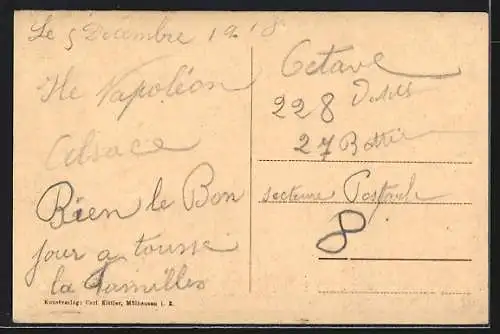 Le 5 Decembre 1918
Ile Napoléon
Alsace
Bien le Bon
jour a tousse
la Familles
Kunstverlag: Carl Kistler, Mülhausen i. E.
Octave
228
27 Battrie
secteure Postale
8